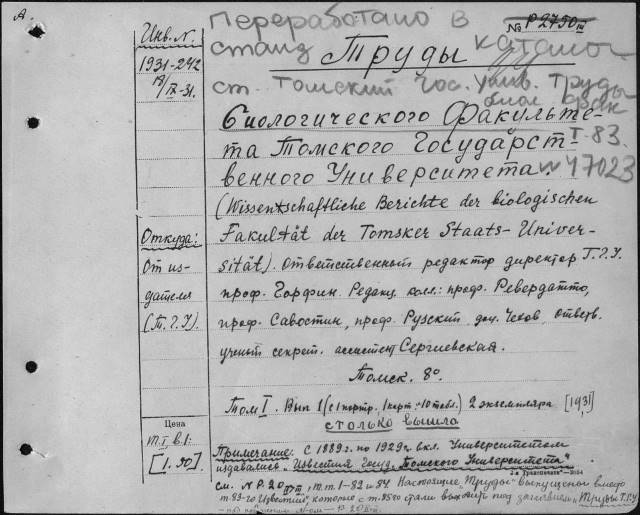 А
Инв. N.
1931-242
18/IX-31.
Откуда:
От из-
дателя
(Т.Г.У).
Цена
т.I в.1.
[1.90].
переработано в
станд каталог
№ Р2790 III
Труды
ст. Томский Гос. Унив. Труды
биол фак
биологического Факульте-
та Томского Государст-
венного Университета.
Т-83.
N 47023
(Wissenschaftliche Berichte der biologischen
Fakultät der Tomsker Staats-Univer-
sität). Ответственный редактор директор Т.Г.У.
проф. Горфин. Редакц. колл.: проф. Ревердатто,
проф. Савостин, проф. Рузский, доц. Чехов, ответв.
ученый секрет. ассистент Сергиевская.
Томск. 8°.
Том I. Вып 1 (с 1 портр. 1 карт. + 10 табл.) 2 экземпляра [1931]
столько вышло
Примечание: С 1889 г. по 1929 г. вкл. Университетом
издавались „Известия Госуд. Томского Университета"
см. N Р.20 т.т. 1-82 и 84 Настоящие „Труды" выпущены вместо
т. 83-го „Известий", которые с т. 85го стали выходить под заглавием „Труды Т.Г.У